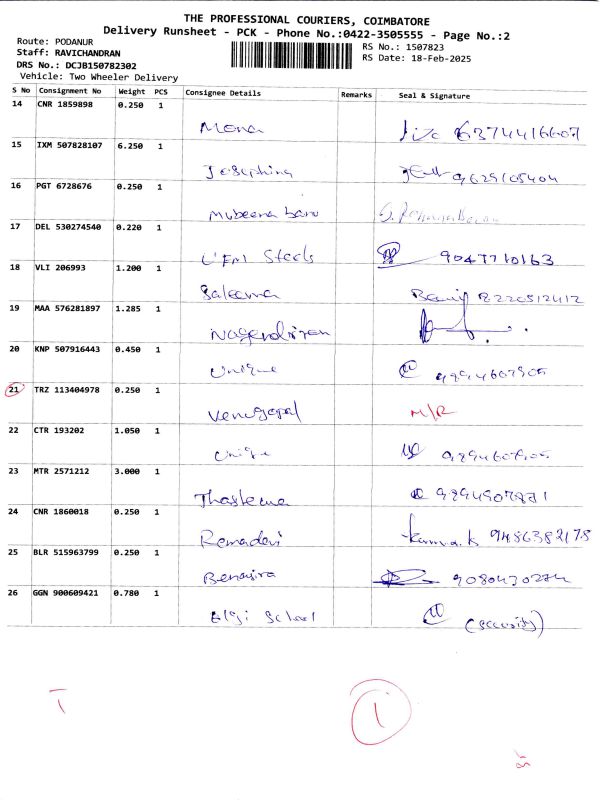 THE PROFESSIONAL COURIERS, COIMBATORE
Delivery Runsheet - PCK - Phone No.:0422-3505555 - Page No.:2
Route: PODANUR
Staff: RAVICHANDRAN
DRS No.: DCJB150782302
Vehicle: Two Wheeler Delivery
RS No.: 1507823
RS Date: 18-Feb-2025
S No Consignment No Weight PCS Consignee Details Remarks Seal & Signature
14 CNR 1859898 0.250 1
Mona 6374416607
15 IXM 507828107 6.250 1
Josephina 9629105404
16 PGT 6728676 0.250 1
Mubeena banu
17 DEL 530274540 0.220 1
Steels 9047710163
18 VLI 206993 1.200 1
Saleema 8220512412
19 MAA 576281897 1.285 1
Nagendiran
20 KNP 507916443 0.450 1
Unique 9894607905
21 TRZ 113404978 0.250 1
Venugopal M/R
22 CTR 193202 1.050 1
Unique 9894607905
23 MTR 2571212 3.000 1
Thasleema
24 CNR 1860018 0.250 1
Remadevi 9486382178
25 BLR 515963799 0.250 1
Benasira 9080430274
26 GGN 900609421 0.780 1
Elgi School (security)
1